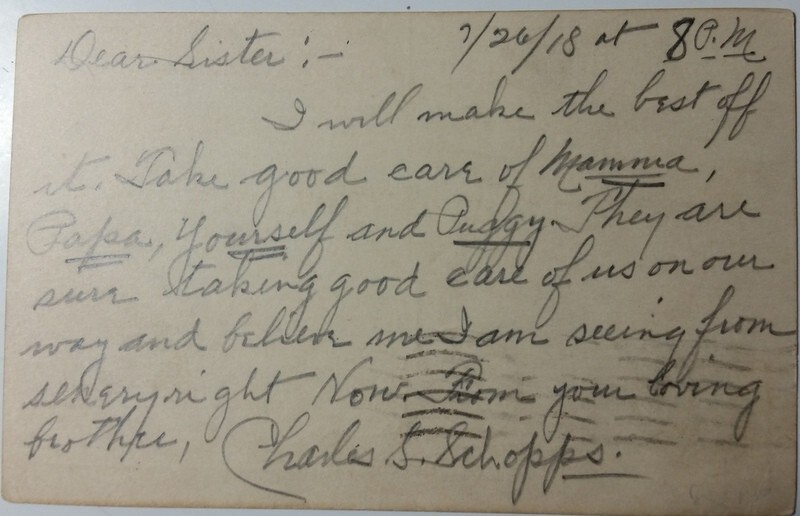 Dear Sister :- 7/26/18 at 8 P.M
I will make the best off
it. Take good care of Mamma,
Papa, Yourself and Pudgy. They are
sure taking good care of us on our
way and believe me I am seeing from
senery right Now. From your loving
brother, Charles S. Schopps.